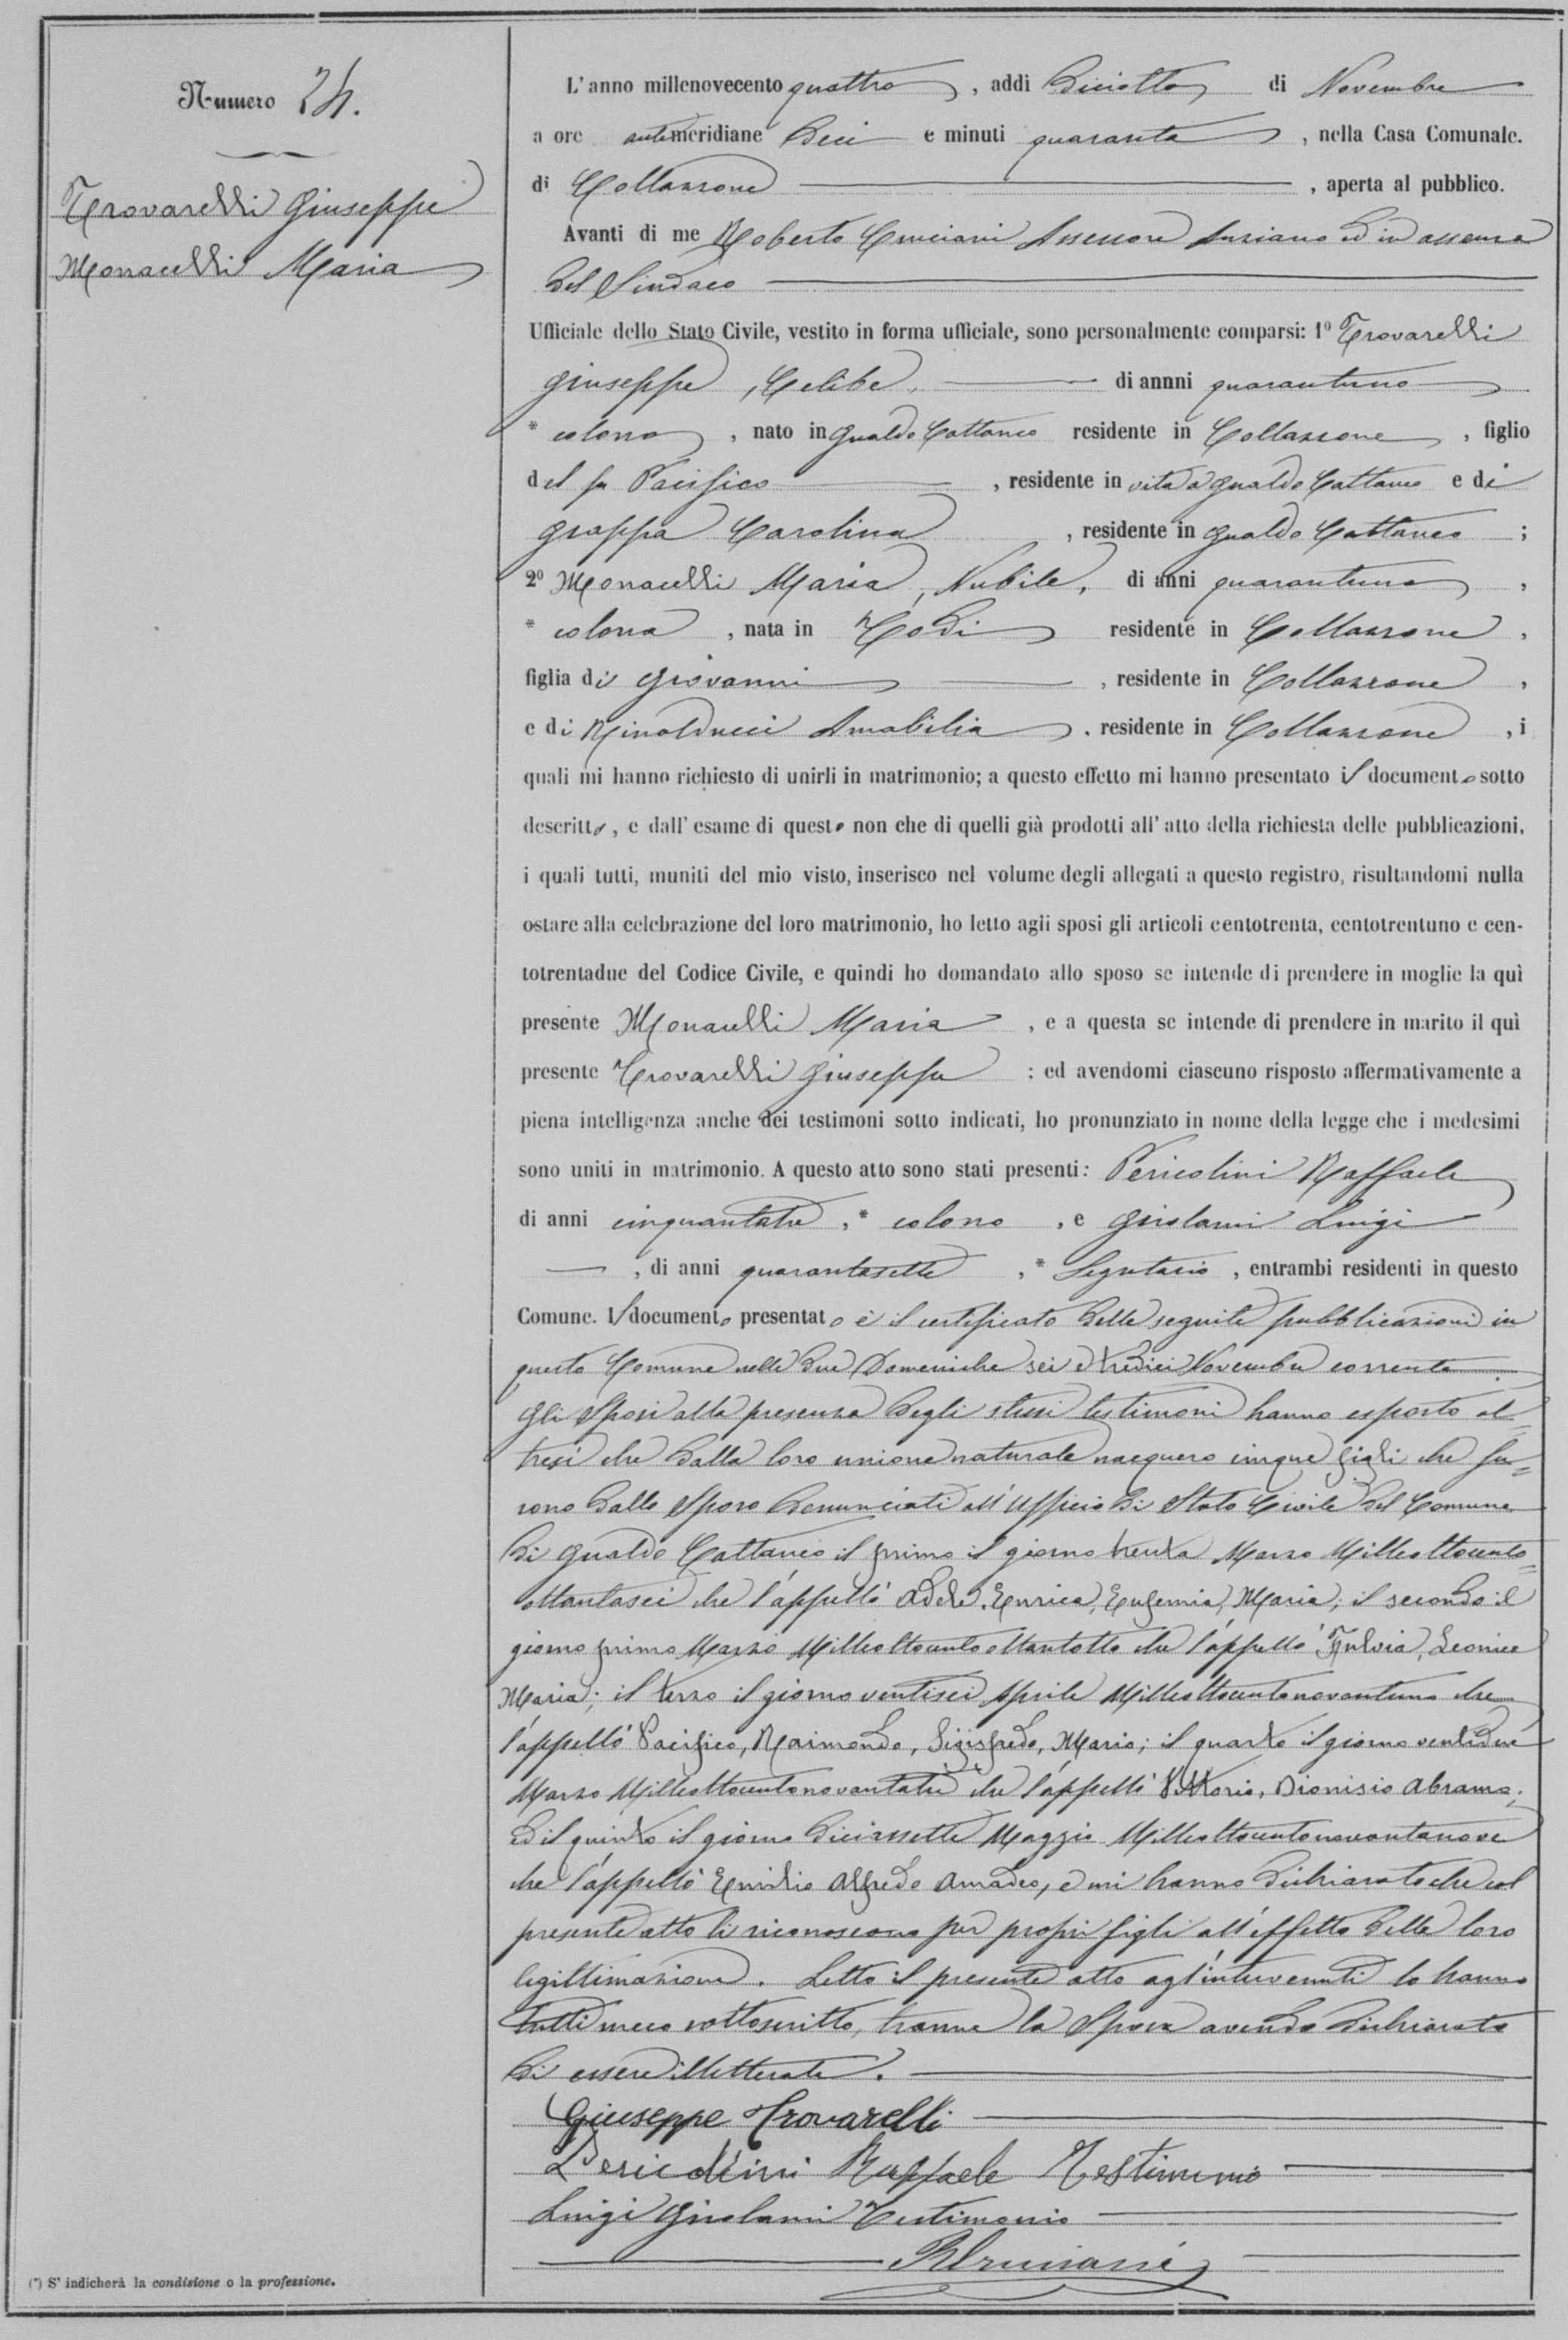 Numero 24.
Trovarelli Giuseppe
Monacelli Maria
L'anno millenovecento quattro, addi diciotto di Novembre
a ore antimeridiane dieci e minuti quaranta, nella Casa Comunale.
di Collazzone, aperta al pubblico.
Avanti di me Roberto Cruciani Assessore Anziano ed in assenza
del Sindaco
Ufficiale dello Stato Civile, vestito in forma ufficiale, sono personalmente comparsi: 1º Trovarelli
Giuseppe, Celibe, di annni quarantuno
* colono, nato in Gualdo Cattaneo residente in Collazzone, figlio
del fu Pacifico, residente in vita a Gualdo Cattaneo e di
Grappa Carolina, residente in Gualdo Cattaneo;
2º Monacelli Maria, Nubile, di anni quarantuno,
* colona, nata in Todi residente in Collazzone,
figlia di Giovanni, residente in Collazzone,
e di Rinalducci Amabilia, residente in Collazzone, i
quali mi hanno richiesto di unirli in matrimonio; a questo effetto mi hanno presentato il documento sotto
descritto, e dall'esame di questo non che di quelli già prodotti all'atto della richiesta delle pubblicazioni,
i quali tutti, muniti del mio visto, inserisco nel volume degli allegati a questo registro, risultandomi nulla
ostare alla celebrazione del loro matrimonio, ho letto agli sposi gli articoli centotrenta, centotrentuno e cen-
totrentadue del Codice Civile, e quindi ho domandato allo sposo se intende di prendere in moglie la quì
presente Monacelli Maria, e a questa se intende di prendere in marito il quì
presente Trovarelli Giuseppe: ed avendomi ciascuno risposto affermativamente a
piena intelligenza anche dei testimoni sotto indicati, ho pronunziato in nome della legge che i medesimi
sono uniti in matrimonio. A questo atto sono stati presenti: Pericolini Raffaele
di anni cinquantatre, * colono, e Girolami Luigi
, di anni quarantasette, * Segretario, entrambi residenti in questo
Comune. Il documento presentato è il certificato delle seguite pubblicazioni in
questo Comune nelle due Domeniche sei e tredici Novembre corrente.
Gli Sposi alla presenza degli stessi testimoni hanno esposto al=
tresì che dalla loro unione naturale nacquero cinque figli che fu=
rono dallo Sposo denunciati all'Ufficio di Stato Civile del Comune
di Gualdo Cattaneo il primo il giorno trenta Marzo Milleottocento=
ottantasei che l'appellò Adele, Enrica, Eufemia, Maria; il secondo il
giorno primo Marzo Milleottocentoottantotto che l'appellò Fulvia, Leonice
Maria; il terzo il giorno ventisei Aprile Milleottocentonovantuno che
l'appellò Pacifico, Raimondo, Sigisfredo, Mario; il quarto il giorno ventidue
Marzo Milleottocentonovantatre che l'appellò Vittorio, Dionisio Abramo;
ed il quinto il giorno diciassette Maggio Milleottocentonovantanove
che l'appellò Emilio Alfredo Amadeo, e mi hanno dichiarato che col
presente atto li riconoscono per propri figli all'effetto della loro
legittimazione. Letto il presente atto agl'intervenuti lo hanno
tutti meco sottoscritto, tranne la Sposa avendo dichiarato
di essere illetterata.
Giuseppe Trovarelli
Pericolini Raffaele Testimonio
Luigi Girolami Testimonio
RCruciani
(*) S' indicherà la condizione o la professione.